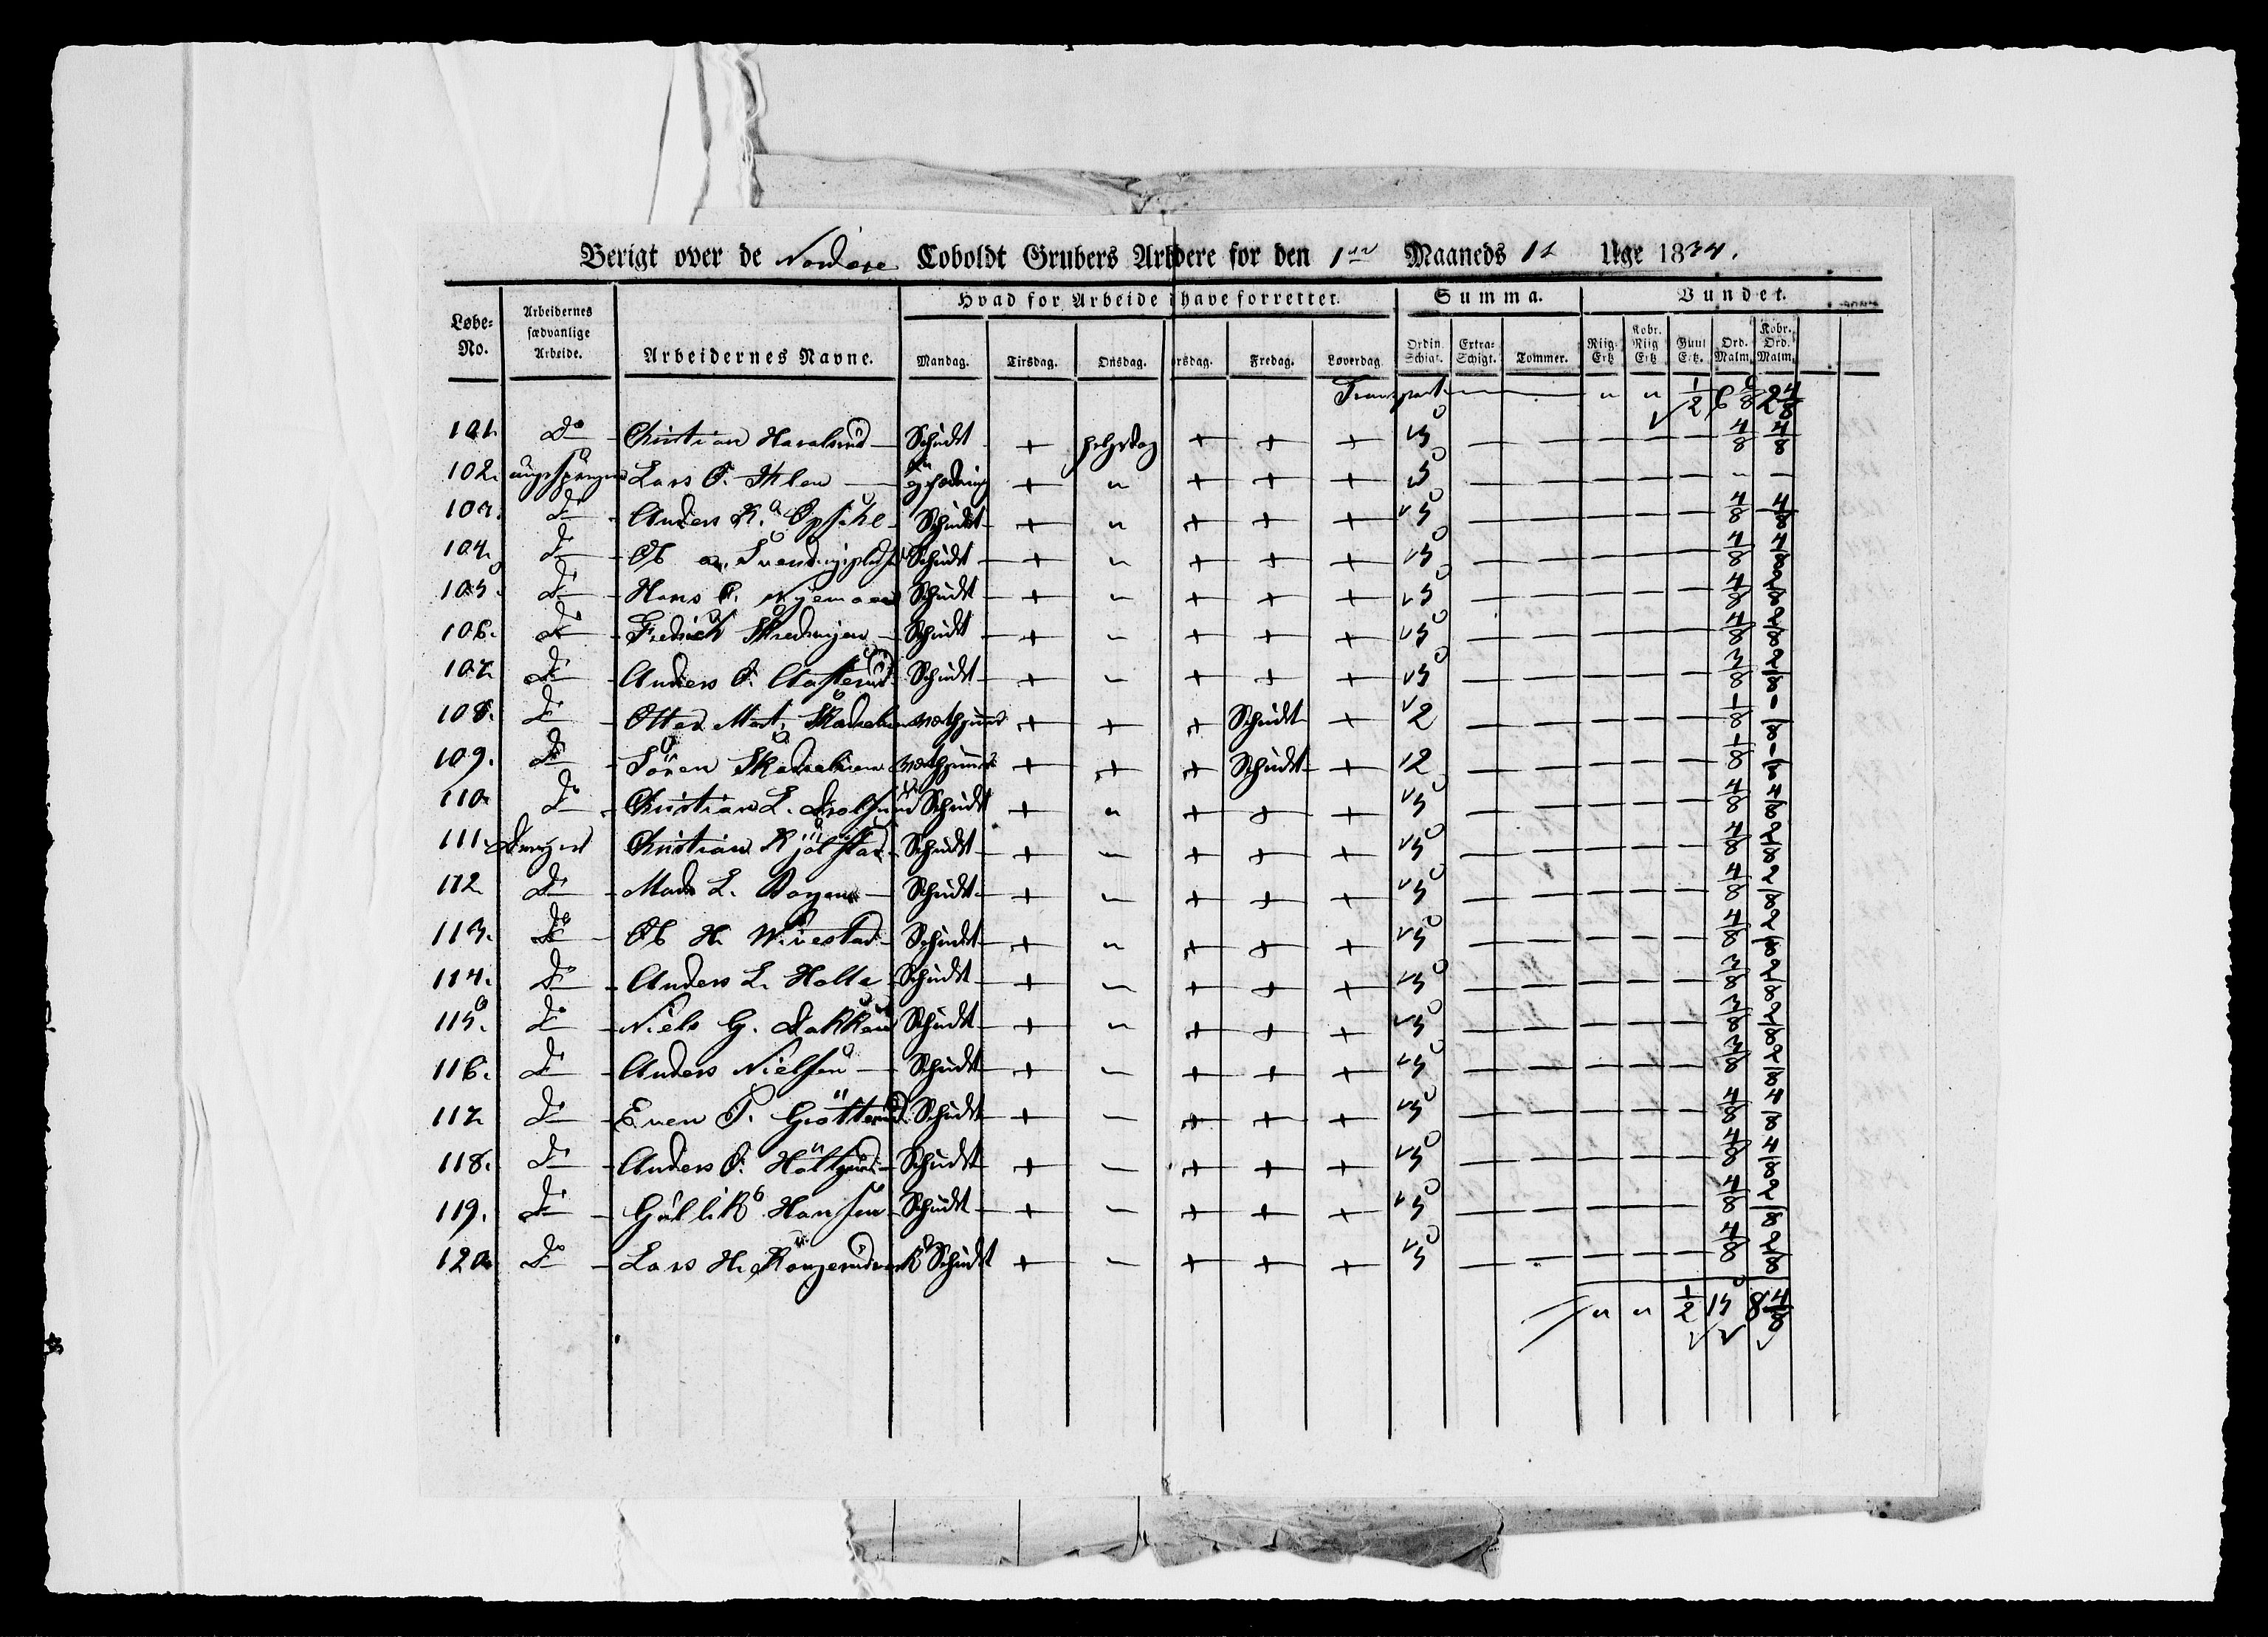 Berigt over de Nordere Coboldt Grubers Arbeidere for den 1ste Maaneds 1ste Uge 1834.
Løbe-No. Arbeidernes sædvanlige Arbeide. Arbeidernes Navne. Hvad for Arbeide ihave forrettet. Summa. Vundet.
Mandag. Tirsdag. Onsdag. orsdag. Fredag. Løverdag. Ordin. Schigt. Extra-Schigt. Tommer. Riig-Ertz Kobr. Riig Ertz Guul Ertz. Ord. Malm. Kobr. Ord. Malm.
Transport — " " 1/2 6 6/8 2 4/8
101. Do Christian Haralsrud Scheidt + helgedag + + + 5 — — — — — 4/8 4/8
102. Lars O. Ihlen + " + + + 5 — — — — — — —
103. Do Anders K. Opsahl Scheidt + " + + + 5 — — — — — 4/8 4/8
104. Do Ol Scheidt + " + + + 5 — — — — — 4/8 4/8
105. Do Hans Nyemoen Scheidt + " + + + 5 — — — — — 4/8 2/8
106. Do Fredrich Scheidt + " + + + 5 — — — — — 4/8 2/8
107. Do Anders O. Aasterud Scheidt + " + + + 5 — — — — — 3/8 2/8
108. Do Otter Mat. + + + Scheidt + 2 — — — — — 1/8 1/8
109. Do Sören + + + Scheidt + 2 — — — — — 1/8 1/8
110. Do Christian L. Scheidt + " + + + 5 — — — — — 4/8 4/8
111. Christian Kjölstad Scheidt + " + + + 5 — — — — — 4/8 2/8
112. Do Mads L. Scheidt + " + + + 5 — — — — — 4/8 2/8
113. Do Ol H. Wivestad Scheidt + " + + + 5 — — — — — 4/8 2/8
114. Do Anders L. Holte Scheidt + " + + + 5 — — — — — 3/8 2/8
115. Do Niels G. Scheidt + " + + + 5 — — — — — 3/8 2/8
116. Do Anders Nielsen Scheidt + " + + + 5 — — — — — 3/8 2/8
117. Do Even P. Grötterud Scheidt + " + + + 5 — — — — — 4/8 4/8
118. Do Anders O. Scheidt + " + + + 5 — — — — — 4/8 4/8
119. Do Gullik Hansen Scheidt + " + + + 5 — — — — — 4/8 2/8
120. Do Lars H. Scheidt + " + + + 5 — — — — — 4/8 2/8
" " 1/2 15 8 4/8